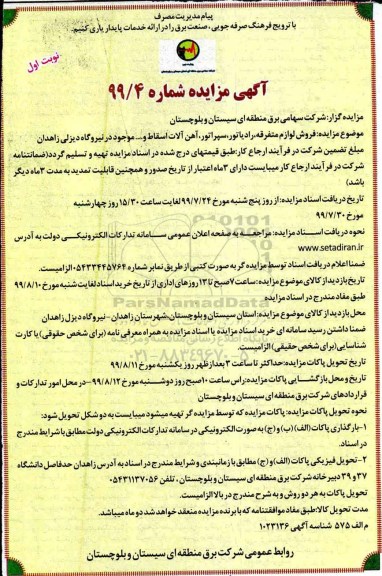 پیام مدیریت مصرف
با ترویج فرهنگ صرفه جویی، صنعت برق را در ارائه خدمات پایدار یاری کنیم.
نوبت اول
آگهی مزایده شماره ۹۹/۴
مزایده گزار: شرکت سهامی برق منطقه ای سیستان و بلوچستان
موضوع مزایده: فروش لوازم متفرقه، رادیاتور، سپراتور، آهن آلات اسقاط و... موجود در نیروگاه دیزلی زاهدان
مبلغ تضمین شرکت در فرآیند ارجاع کار: طبق قیمتهای درج شده در اسناد مزایده تهیه و تسلیم گردد (ضمانتنامه
شرکت در فرآیند ارجاع کار میبایست دارای ۳ ماه اعتبار از تاریخ صدور و همچنین قابلیت تمدید به مدت ۳ ماه دیگر
باشد)
تاریخ دریافت اسناد مزایده: از روز پنج شنبه مورخ ۹۹/۷/۲۴ لغایت ساعت ۱۵/۳۰ روز چهارشنبه
مورخ ۹۹/۷/۳۰
نحوه دریافت اسناد مزایده: مراجعه به صفحه اعلان عمومی سامانه تدارکات الکترونیکی دولت به آدرس
www.setadiran.ir
ضمنا اعلام دریافت اسناد توسط مزایده گر به صورت کتبی از طریق نمابر شماره ۰۵۴۳۳۴۴۵۷۶۴ الزامیست.
تاریخ بازدید از کالای موضوع مزایده: ساعت ۷ صبح تا ۱۳ روزهای اداری از تاریخ خرید اسناد لغایت شنبه مورخ ۹۹/۸/۱۰
طبق مفاد مندرج در اسناد مزایده
محل بازدید از کالای موضوع مزایده: استان سیستان و بلوچستان، شهرستان زاهدان - نیروگاه دیزل زاهدان
ضمنا داشتن رسید سامانه ای خرید اسناد مزایده یا اسناد مزایده به همراه معرفی نامه (برای شخص حقوقی) یا کارت
شناسایی (برای شخص حقیقی) الزامیست.
تاریخ تحویل پاکات مزایده: حداکثر تا ساعت ۲ بعدازظهر روز یکشنبه مورخ ۹۹/۸/۱۱
تاریخ و محل بازگشایی پاکات مزایده: راس ساعت ۱۰ صبح روز دوشنبه مورخ ۹۹/۸/۱۲ - در محل امور تدارکات و
قراردادهای شرکت برق منطقه ای سیستان و بلوچستان
نحوه تحویل پاکات مزایده: پاکات مزایده که توسط مزایده گر تهیه میشود میبایست به دو شکل تحویل شود:
۱- بارگذاری پاکات (الف) (ب) و (ج) به صورت الکترونیکی در سامانه تدارکات الکترونیکی دولت مطابق با شرایط مندرج
در اسناد.
۲- تحویل فیزیکی پاکات (الف) و (ج) مطابق با زمانبندی و شرایط مندرج در اسناد به آدرس زاهدان حدفاصل دانشگاه
۳۷ و ۳۹ دبیرخانه شرکت برق منطقه ای سیستان و بلوچستان، تلفن ۰۵۴۳۱۱۳۷۰۵۶
تحویل پاکات به هر دو روش و به شرح مندرج در بالا الزامیست.
مدت تحویل کالا: طبق مفاد موافقتنامه که با برنده مزایده منعقد خواهد شد دو ماه میباشد.
م الف ۵۷۵ شناسه آگهی ۱۰۲۳۱۳۶
روابط عمومی شرکت برق منطقه ای سیستان و بلوچستان